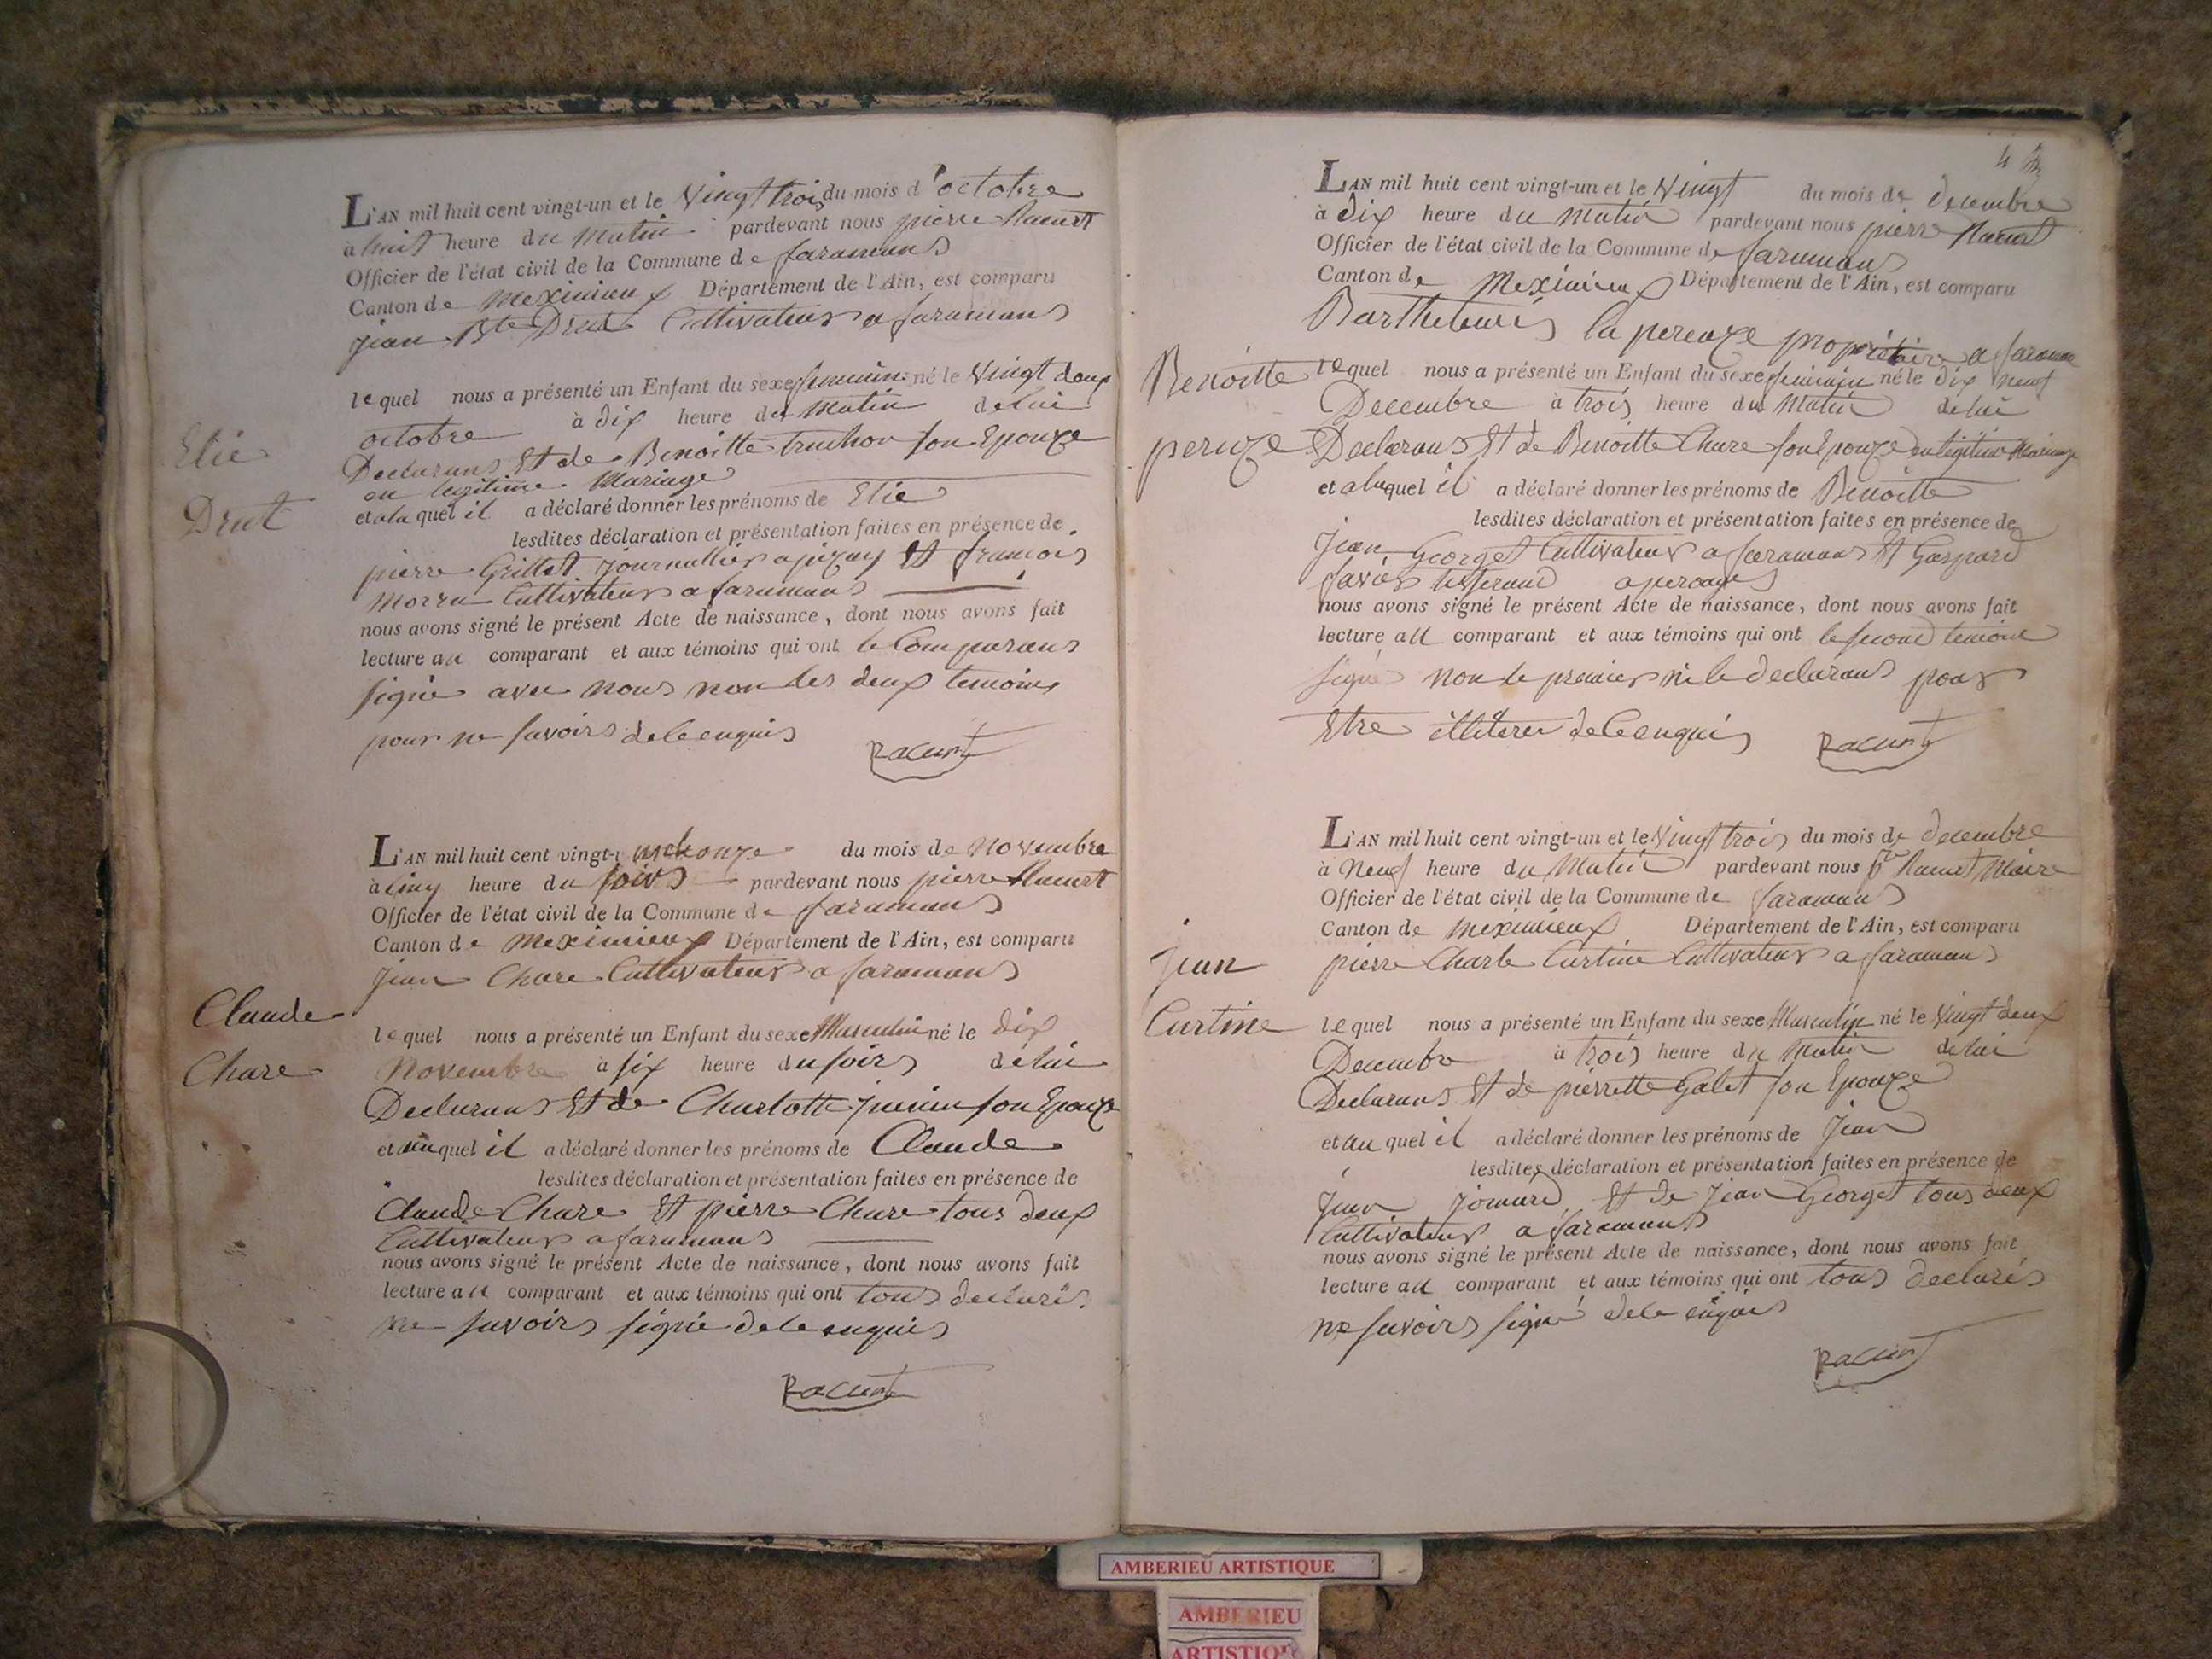 L'AN mil huit cent vingt-un et le Vingt trois du mois d'octobre
à huit heure du Matin pardevant nous pierre Racurt
Officier de l'état civil de la Commune de faramans
Canton de Meximieux Département de l'Ain, est comparu
jean Bte Drut Cultivateur a faramans
lequel nous a présenté un Enfant du sexe feminin né le Vingt deux
octobre à dix heure du Matin de lui
Declarans Et de Benoitte truchon son Epouze
en legitime Mariage
Elie
Drut
et ala quel il a déclaré donner les prénoms de Elie
lesdites déclaration et présentation faites en présence de
pierre Grillet journallier a pizay Et francois
Morra Cultivateur a faramans
nous avons signé le présent Acte de naissance, dont nous avons fait
lecture au comparant et aux témoins qui ont le Comparans
signé avec nous non les deux temoins
pour ne savoirs de ce enquis
Racurt
L'AN mil huit cent vingt-un et le onze du mois de Novembre
à Cinq heure du soirs pardevant nous pierre Racurt
Officier de l'état civil de la Commune de faramans
Canton de Meximieux Département de l'Ain, est comparu
jean Chare Cultivateur a faramans
Claude
Chare
lequel nous a présenté un Enfant du sexe Masculin né le Dix
Novembre à six heure du soirs de lui
Declarans Et de Charlotte son Epouze
et au quel il a déclaré donner les prénoms de Claude
lesdites déclaration et présentation faites en présence de
Claude Chare Et pierre Chare tous deux
Cultivateurs a faramans
nous avons signé le présent Acte de naissance, dont nous avons fait
lecture au comparant et aux témoins qui ont tous declarés
ne savoirs signé de ce enquis
Racurt
L'AN mil huit cent vingt-un et le Vingt du mois de decembre
à dix heure du Matin pardevant nous pierre Racurt
Officier de l'état civil de la Commune de faramans
Canton de Meximieux Département de l'Ain, est comparu
Barthelemis la perouze propriétaire a faramans
Benoitte
peruze
lequel nous a présenté un Enfant du sexe feminin né le Dix neuf
Decembre à trois heure du Matin de lui
Declarans Et de Benoitte Chare son Epouze en legitime Mariage
et ala quel il a déclaré donner les prénoms de Benoitte
lesdites déclaration et présentation faites en présence de
Jean Georget Cultivateur a faramans Et Gaspard
favier tisserand a perouges
nous avons signé le présent Acte de naissance, dont nous avons fait
lecture au comparant et aux témoins qui ont le second temoin
signé non le premier ni le declarans pour
Etre illiteré de ce enquis
Racurt
L'AN mil huit cent vingt-un et le Vingt trois du mois de decembre
à Neuf heure du Matin pardevant nous prre Racurt Maire
Officier de l'état civil de la Commune de faramans
Canton de Meximieux Département de l'Ain, est comparu
pierre Charle Curtine Cultivateur a faramans
jean
Curtine
lequel nous a présenté un Enfant du sexe Masculin né le Vingt deux
Decembre à trois heure du Matin de lui
Declarans Et de pierrette Galet son Epouze
et au quel il a déclaré donner les prénoms de Jean
lesdites déclaration et présentation faites en présence de
Jean Jomard Et de Jean Georget tous deux
Cultivateurs a faramans
nous avons signé le présent Acte de naissance, dont nous avons fait
lecture au comparant et aux témoins qui ont tous declarés
ne savoirs signé de ce enquis
Racurt
AMBERIEU ARTISTIQUE
AMBERIEU
ARTISTIQ